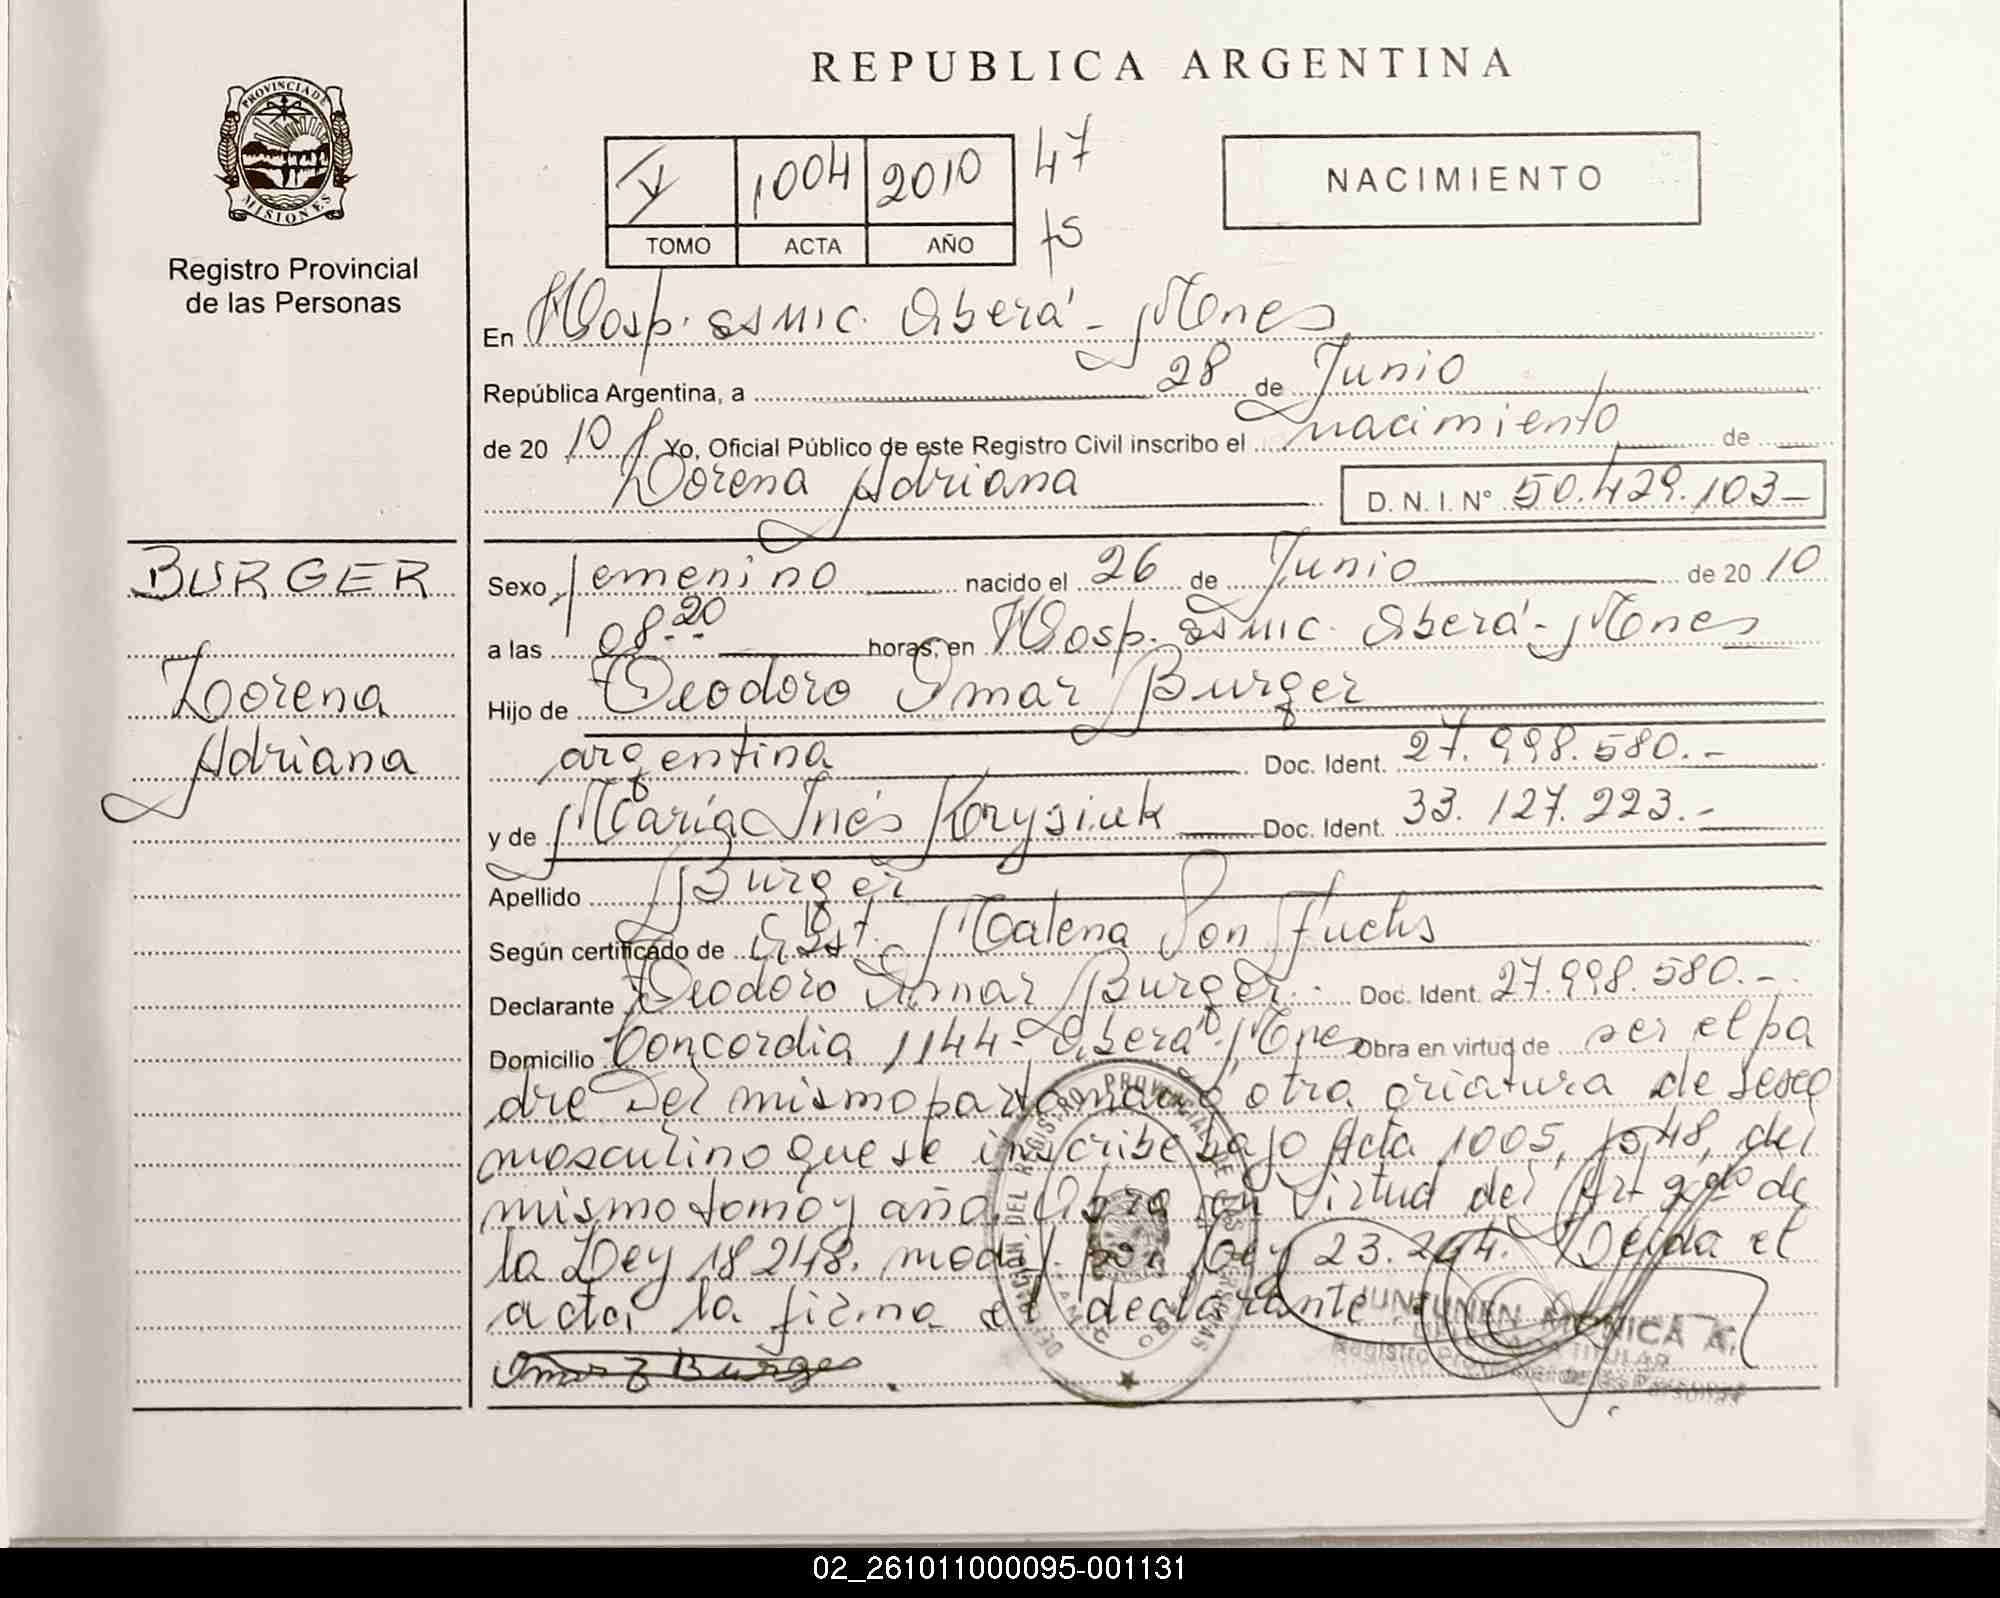 REPUBLICA ARGENTINA
PROVINCIA DE
MISIONES
Registro Provincial
de las Personas
V 1004 2010 47
TOMO ACTA AÑO
NACIMIENTO
En Hosp. Oberá - Mnes
República Argentina, a 28 de Junio
de 2010 Yo, Oficial Público de este Registro Civil inscribo el nacimiento de
Lorena Adriana D. N. I. Nº 50.429.103
BURGER
Lorena
Adriana
Sexo femenino nacido el 26 de Junio de 2010
a las 08.20 horas, en Hosp. Oberá - Mnes
Hijo de Teodoro Omar Burger
argentina Doc. Ident. 27.998.580.-
y de María Inés Krysiuk Doc. Ident. 33.127.223.-
Apellido Burger
Según certificado de Malena Von Fuchs
Declarante Teodoro Omar Burger Doc. Ident. 27.998.580.-
Domicilio Concordia 1144 - Oberá - Mnes Obra en virtud de ser el pa
dre Del mismo parto nació otra criatura de sexo
masculino que se inscribe bajo Acta 1005, fs 48, del
mismo tomo y año. Obra en virtud del Art 2do de
la Ley 18248. modif. por Ley 23.264. Leída el
acta, la firma el declarante
Omar Burger
JUNTUNEN MONICA A.
Registro Provincial de las Personas
02_261011000095-001131